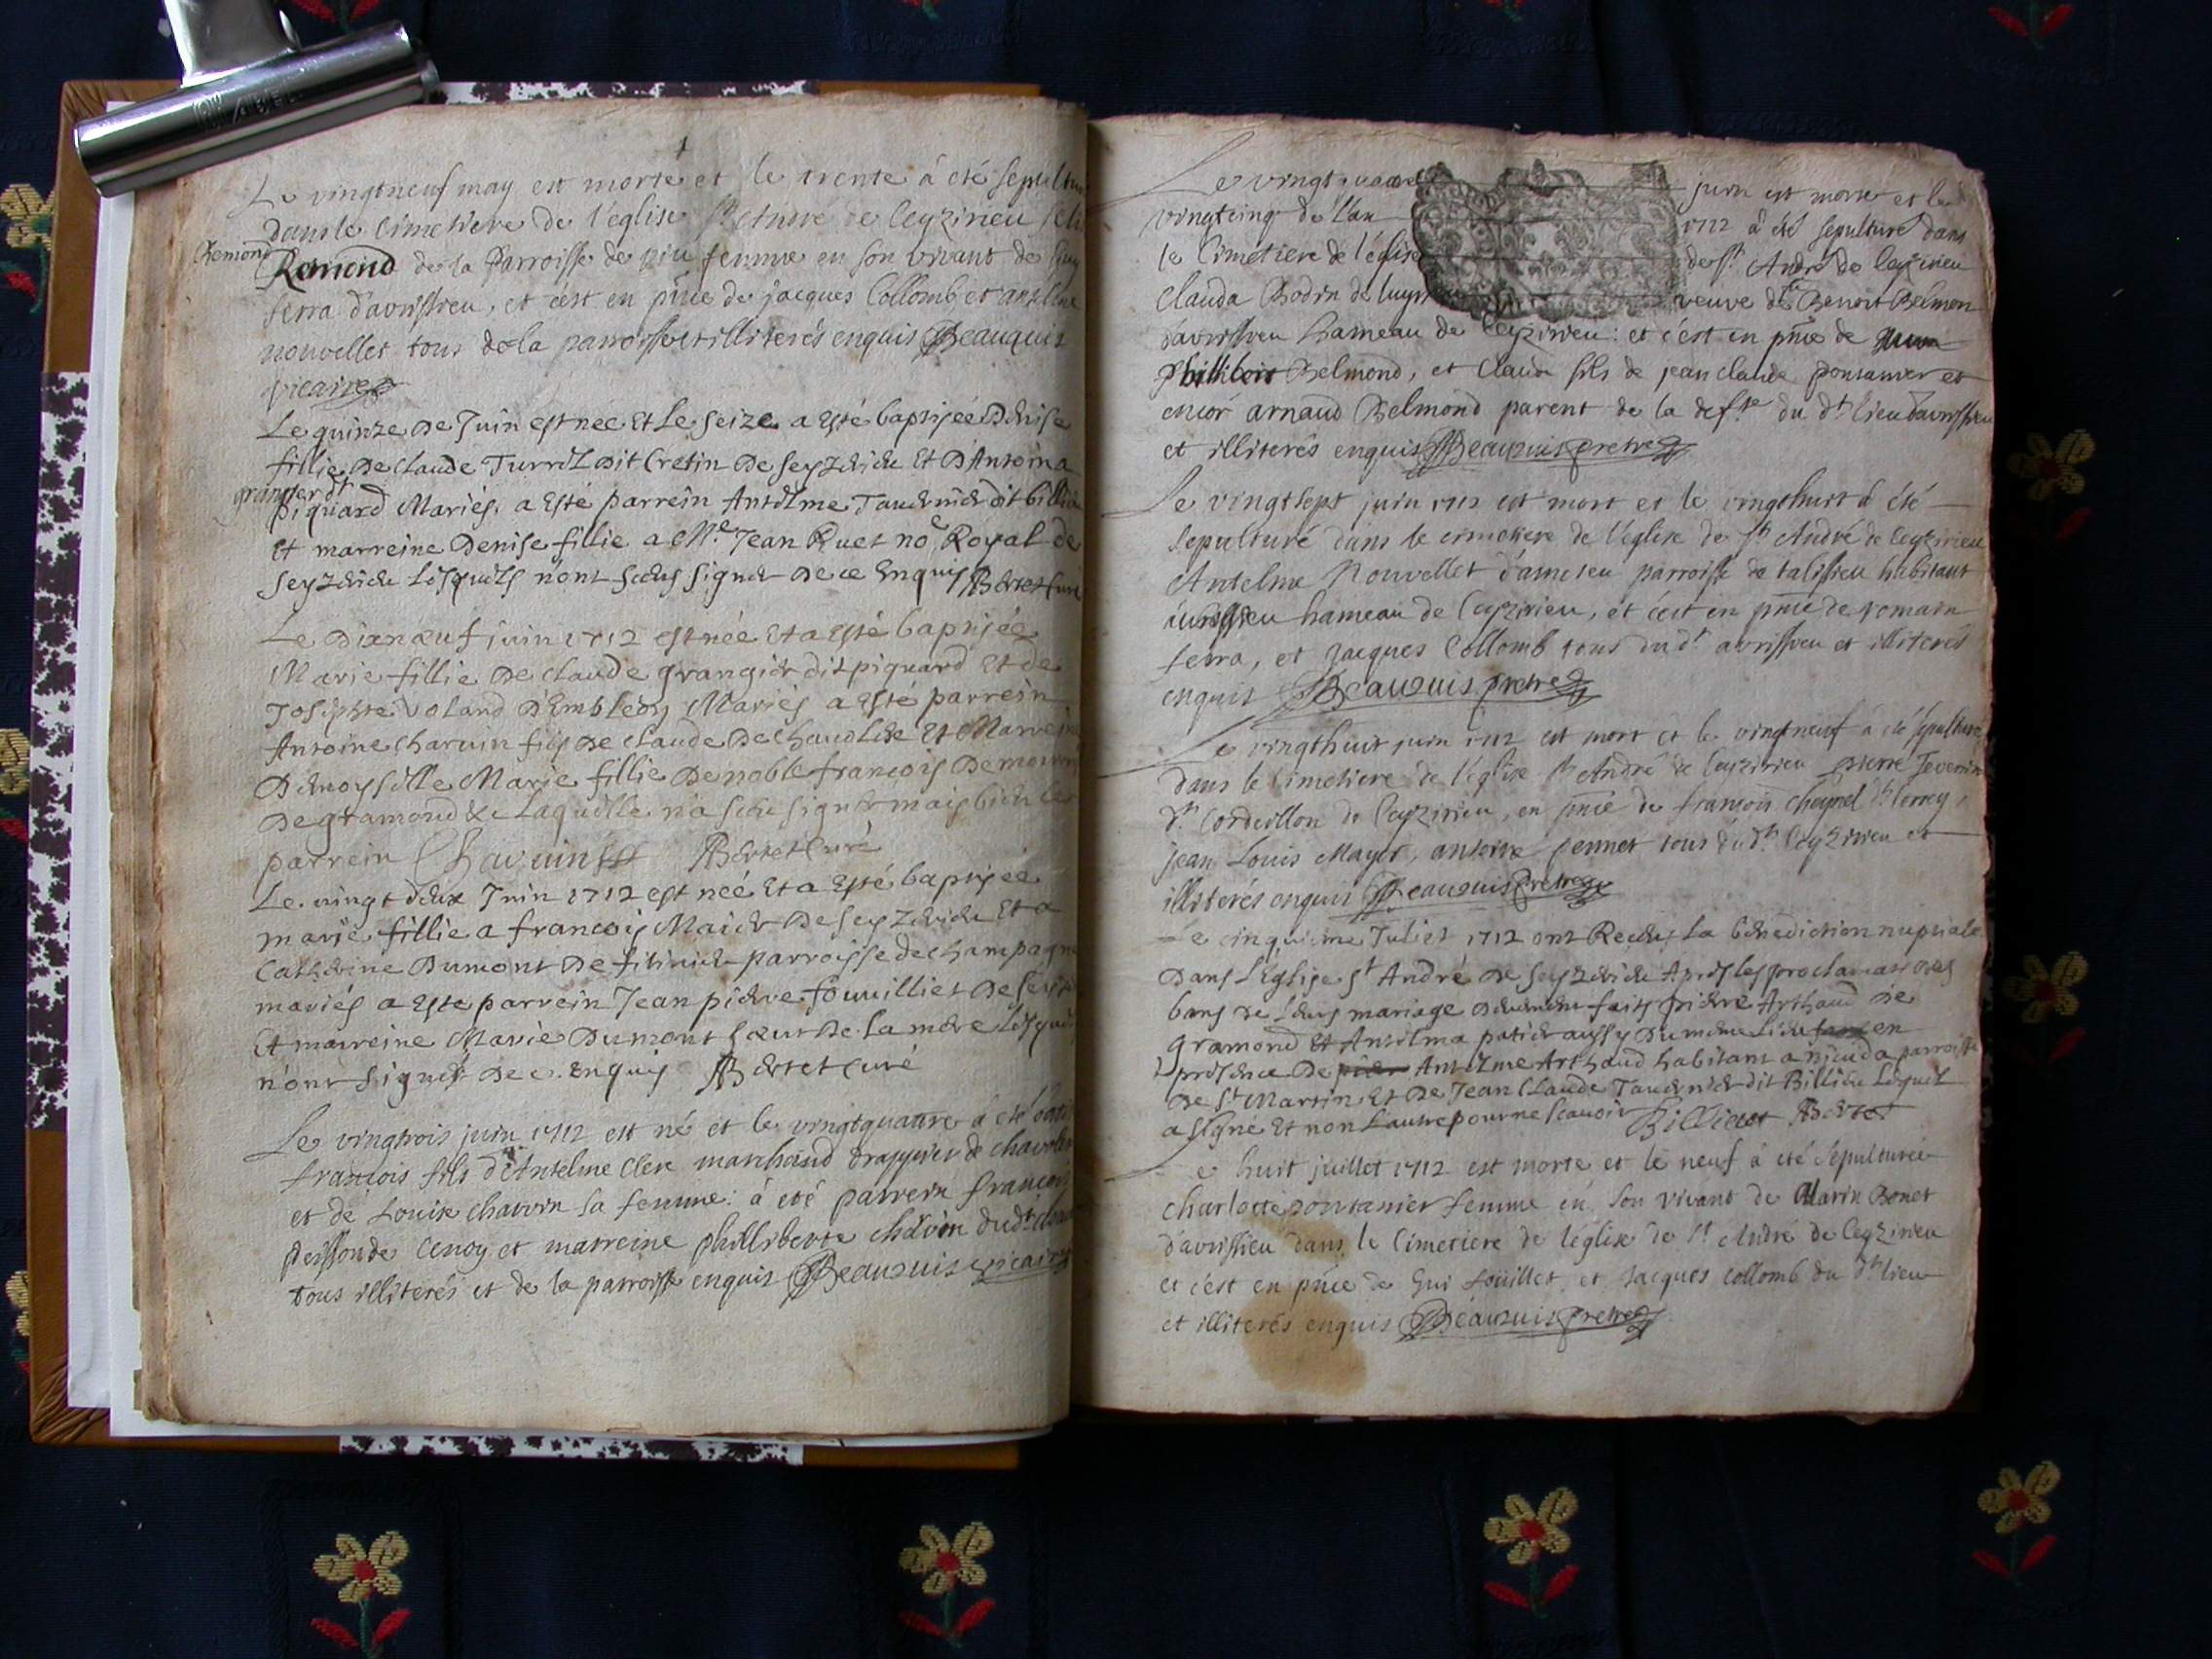 Le vingtneuf may est morte et le trente à été sepultur
dans le Cimetiere de l'église St André de Ceyzirieu
Remond
Remond de la Parroisse de femme en son vivant de
serra d'avrissieu, et c'est en pnce de jacques Collomb et anselme
nouvellet tous de la parroisse et illiterés enquis Beauquis
vicaire
Le quinze De Juin est nee Et Le seize a Esté baptisée Denise
fillie De Claude Turril Dit Cretin De Seyzérieu Et D'Antoina
granger dt
piquard Mariés, a Esté parrein Antelme Tavernier dit billi
Et marreine Denise fillie a Me Jean Ruet no.e Royal de
Seyzerieu Lesquels n'ont sceus signer De ce Enquis Bertet Curé
Le Dixneuf juin 1712 est née Et a Esté baptisée
Marie fillie De Claude grangier dit piquard Et de
Josephte Voland D'Embléon Mariés a Esté parrein
Antoine Charvin fils De Claude De Chavolese Et Marreine
Demoyselle Marie fillie De noble francois De
De gramond &c Laquelle n'a sceu signer mais bien le
parrein Charvin Bertet Curé
Le vingt deux Juin 1712 est neé Et a Esté baptisée
marie fillie a francois Maier De Seyzerieu Et a
Catherine Dumont De fitinieu parroisse de Champagne
mariés a Este parrein Jean pierre fouilliet De Seyz
Et marreine Marie Dumont soeur De La mere Lesquel
n'ont signés De c. Enquis Bertet Curé
Le vingtrois juin 1712 est né et le vingtquatre à été bati
françois fils d'Antelme Clerc marchand drappier de chavole
et de Louise charvin sa femme: à eté parrein françois
de Cenoy et marreine philliberte charvin dudt
tous illiterés et de la parroisse enquis Beauquis vicaire
Le vingt quatre juin est morte et le
vingtcinq de l'an 1712 à été sepulture dans
le Cimetiere de l'église de St André de Ceyzirieu
Clauda Bodin de veuve de Benoit Belmon
d'avrissieu hameau de Ceyzirieu: et c'est en pnce de
phillibert Belmond, et Claude fils de jean claude pontanier et
encor arnaud Belmond parent de la defte du dt lieu d'avrissieu
et illiterés enquis Beauquis pretre
Le vingtsept juin 1712 est mort et le vingthuit à été
sepulturé dans le cimetiere de l'église de St André de Ceyzirieu
Antelme Nouvellet d'ameseu parroisse de talissieu habitant
avrissieu hameau de Ceyzirieu, et c'est en pnce de romain
serra, et Jacques Collomb tous du dt avrissieu et illiterés
enquis Beauquis pretre
Le vingthuit juin 1712 est mort et le vingtneuf à été sépulturé
dans le Cimetiere de l'église St André de Ceyzirieu pierre Jevenin
dt Cordeillon de Ceyzirieu, en pnce de françois cheynel dt
jean Louis Mayet, antoine pennet tous du dt Ceyzirieu et
illiterés enquis Beauquis pretre
Le cinquieme Juliet 1712 ont Receus La benediction nuptiale
Dans L'Eglise St André De Seyzerieu Apres les proclamations
bans De Leurs mariage Deuement faits pierre Arthaud De
Gramond Et Antelma patier aussy Du meme Lieu en
presence De Antelme Arthaud habitant a njeuda parroisse
De St Martin Et De Jean Claude Tavernier dit Billieu Lequel
a signe Et non Lautre pour ne scauoir Billiet Bertet
Le huit juillet 1712 est morte et le neuf à eté sépulturée
charlotte pontanier femme en son vivant de Marin Bonet
d'avrissieu dans le Cimetiere de l'église de St André de Ceyzirieu
et c'est en pnce de Gui Louillet et Jacques Collomb du dt lieu
et illiterés enquis Beauquis pretre